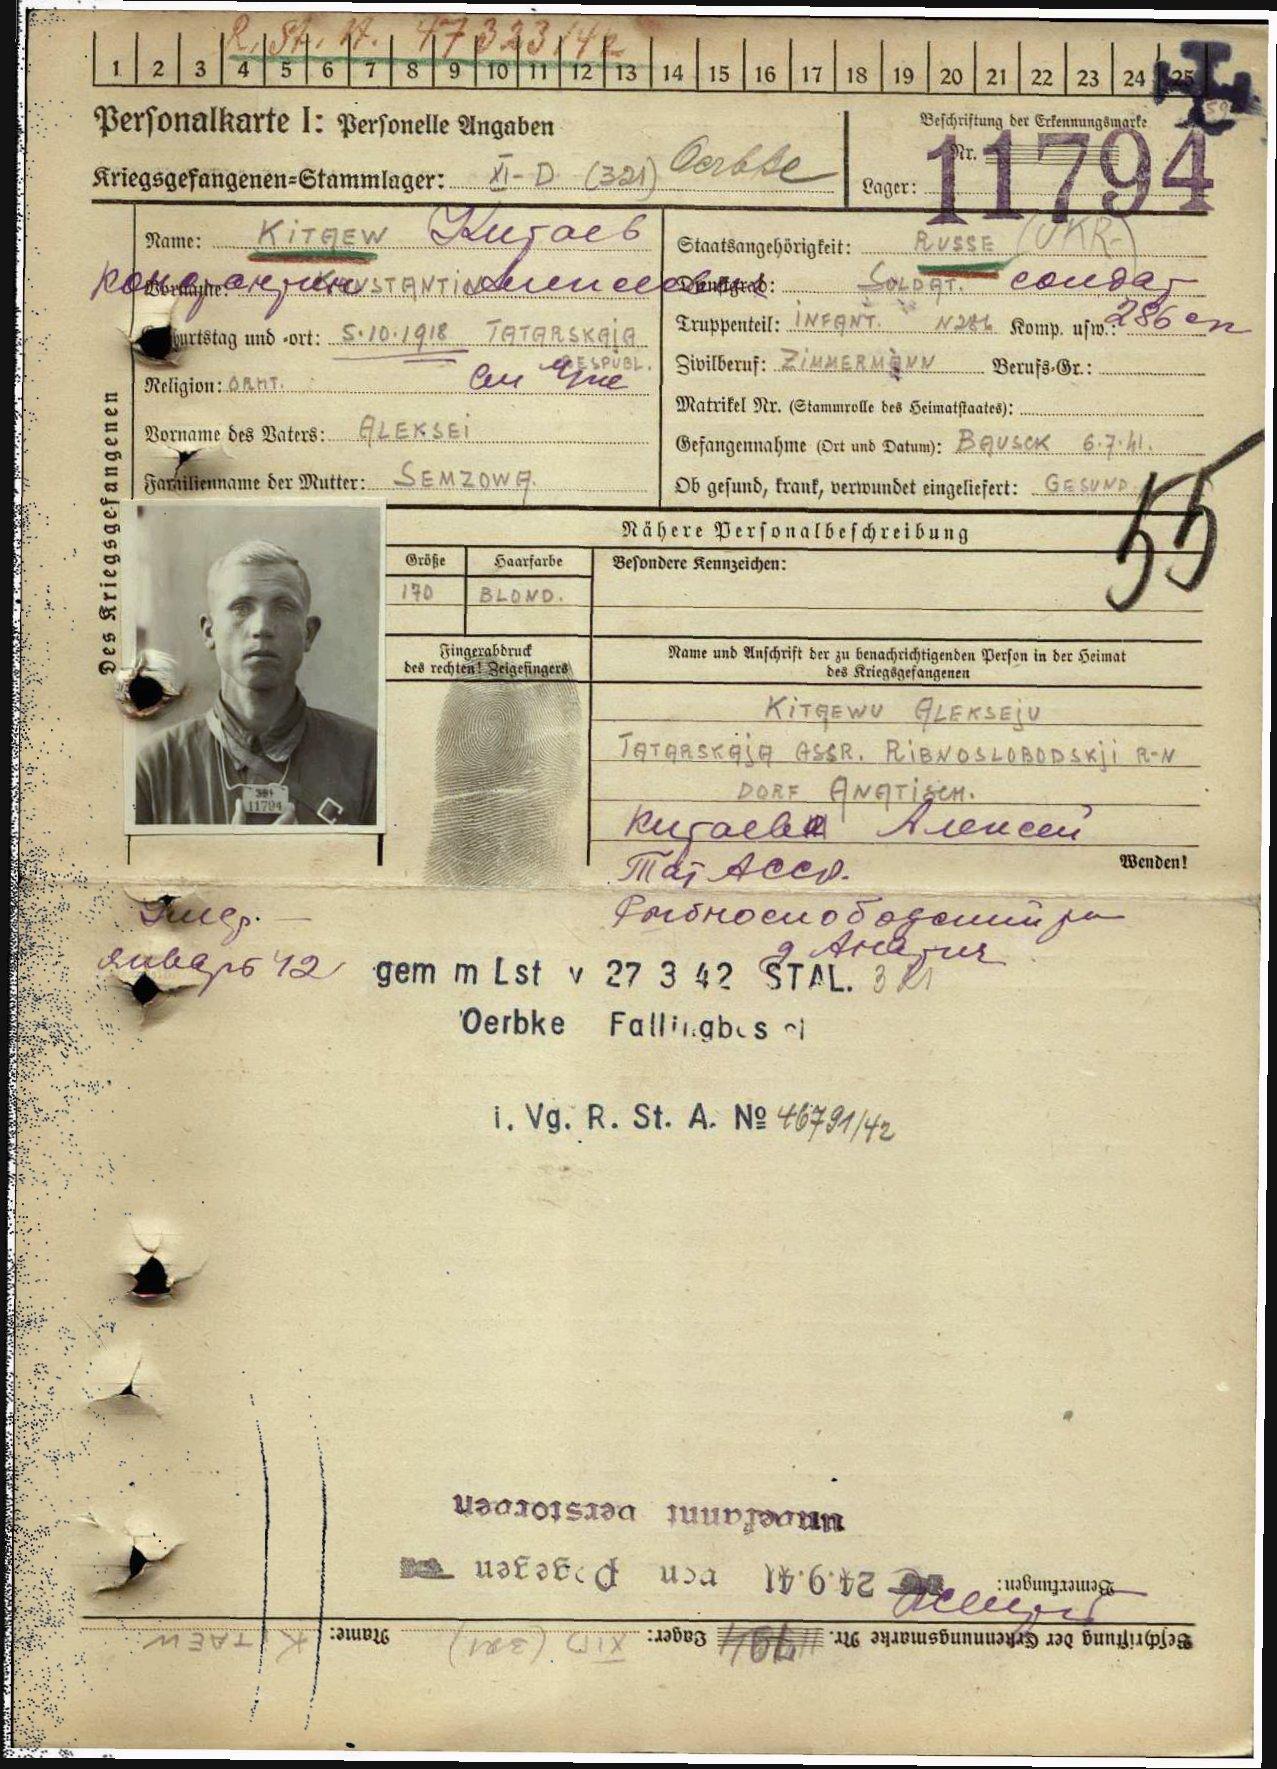 R. St. A. 47323/42
1 2 3 4 5 6 7 8 9 10 11 12 13 14 15 16 17 18 19 20 21 22 23 24 25
Personalkarte I: Personelle Angaben
Beschriftung der Erkennungsmarke
Nr. 11794
Kriegsgefangenen=Stammlager: XI-D (321) Oerbke
Lager:
Des Kriegsgefangenen
Name: KITAEW Китаев
Vorname: KONSTANTIN Константин Алексеевич
Geburtstag und -ort: 5.10.1918 TATARSKAJA
RESPUBL.
Religion: ORHT.
Vorname des Vaters: ALEKSEI
Familienname der Mutter: SEMZOWA.
Staatsangehörigkeit: RUSSE (UKR-)
Dienstgrad: SOLDAT. солдат
Truppenteil: INFANT. N286 Komp. usw.: 286 сп
Zivilberuf: ZIMMERMANN Berufs-Gr.:
Matrikel Nr. (Stammrolle des Heimatstaates):
Gefangennahme (Ort und Datum): BAUSCK 6.7.41.
Ob gesund, krank, verwundet eingeliefert: GESUND.
55
Nähere Personalbeschreibung
Größe Haarfarbe Besondere Kennzeichen:
170 BLOND.
Fingerabdruck
des rechten! Zeigefingers
Name und Anschrift der zu benachrichtigenden Person in der Heimat
des Kriegsgefangenen
KITAEWU ALEKSEJU
TATARSKAJA ASSR. RIBNOSLOBODSKJI R-N
DORF ANATISCH.
11794
Китаев Алексей
Wenden!
Тат АССР.
Рыбнослободский р-н
д Анатиш
Умер. —
январь 42
gem m Lst v 27 3 42 STAL. 321
Oerbke Fallingbostel
i. Vg. R. St. A. № 46791/42
unbekannt verstorben
24.9.41 von Pogegen
Bemerkungen:
Beschriftung der Erkennungsmarke Nr. Lager: XI D (321) Name: KITAEW